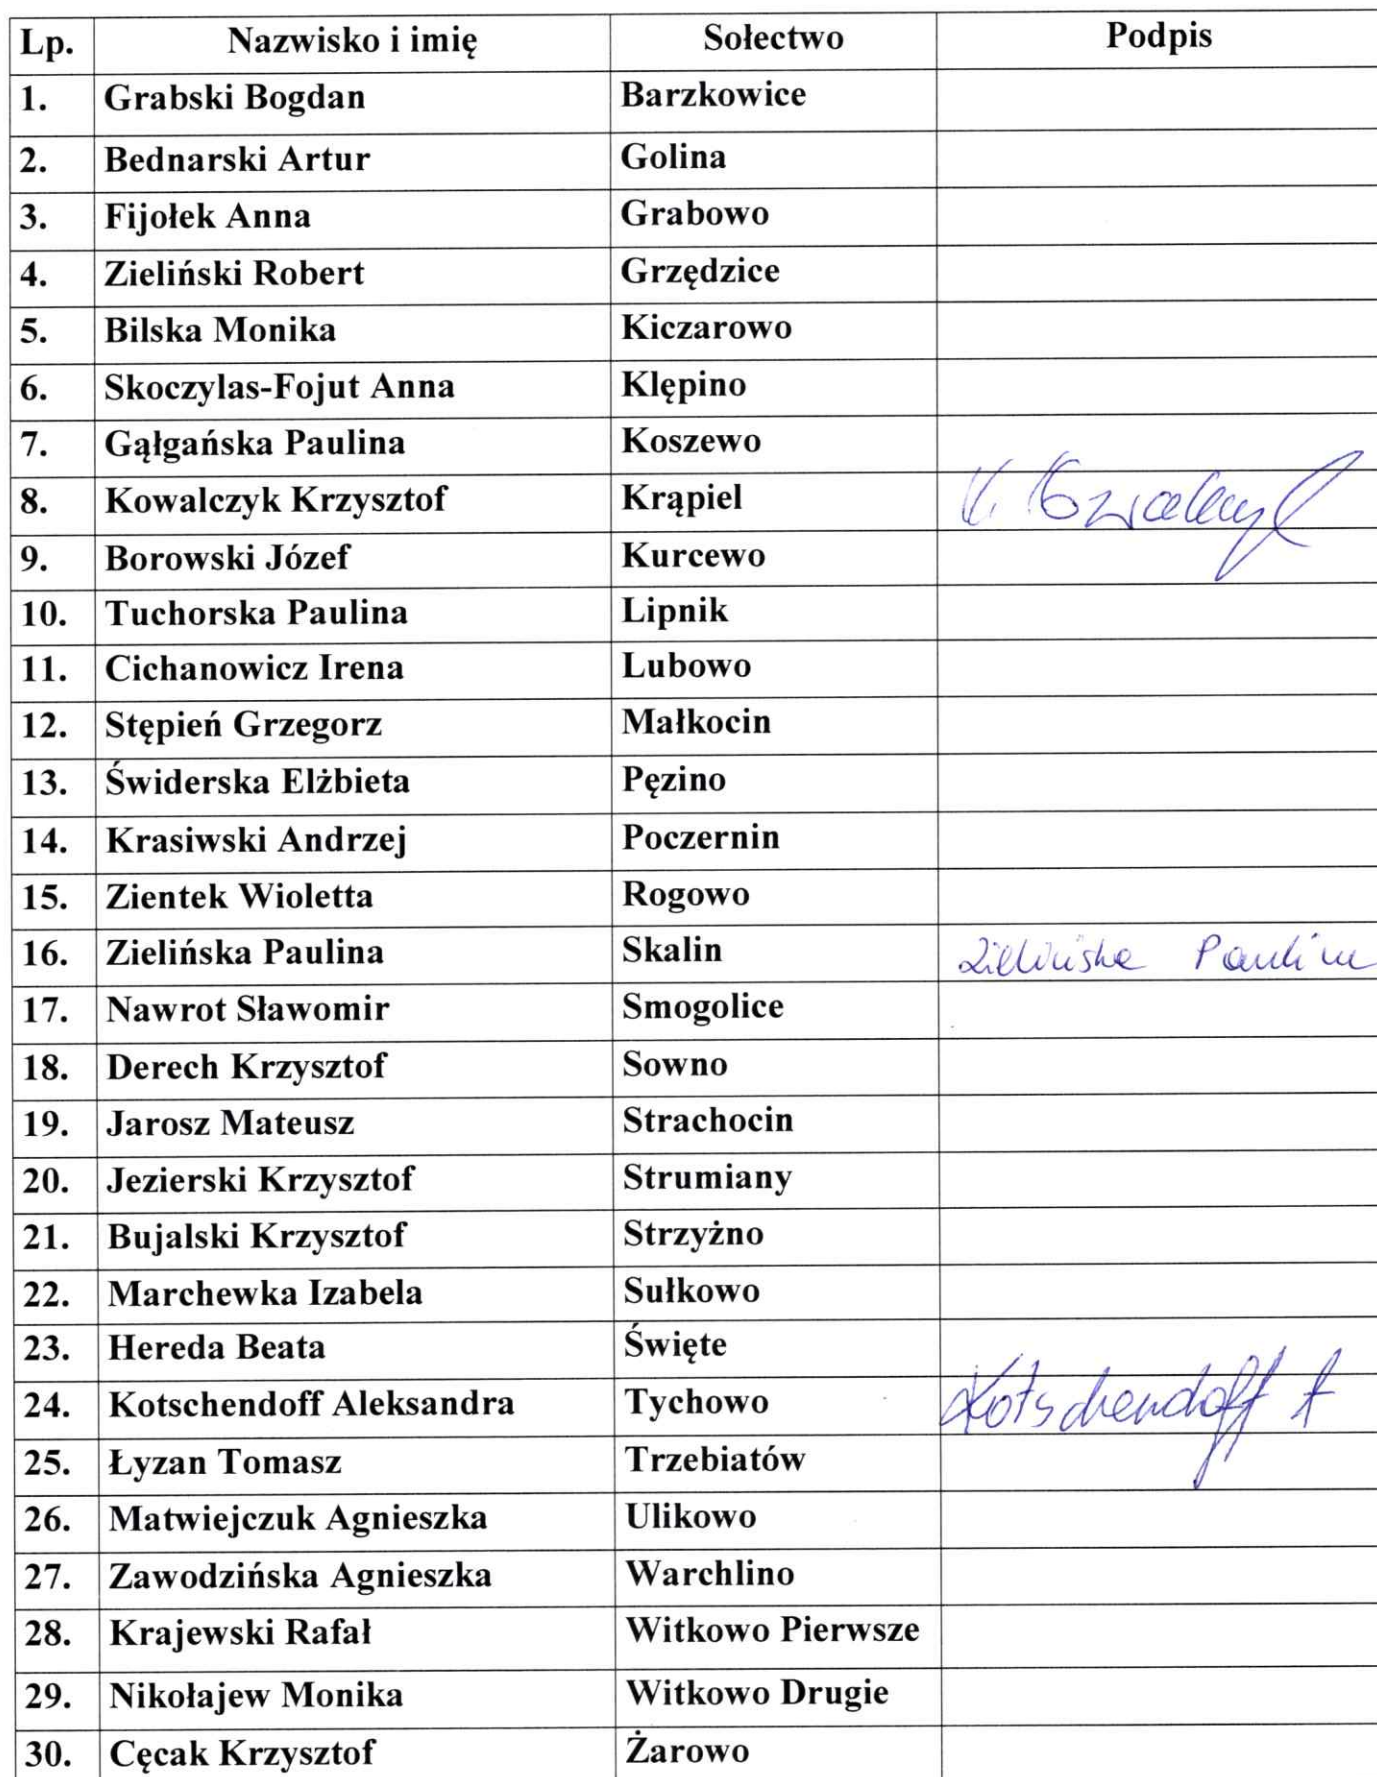 Lp. Nazwisko i imię Sołectwo Podpis
1. Grabski Bogdan Barzkowice
2. Bednarski Artur Golina
3. Fijołek Anna Grabowo
4. Zieliński Robert Grzędzice
5. Bilska Monika Kiczarowo
6. Skoczylas-Fojut Anna Klępino
7. Gąłgańska Paulina Koszewo
8. Kowalczyk Krzysztof Krąpiel K. Kowalczyk
9. Borowski Józef Kurcewo
10. Tuchorska Paulina Lipnik
11. Cichanowicz Irena Lubowo
12. Stępień Grzegorz Małkocin
13. Świderska Elżbieta Pęzino
14. Krasiwski Andrzej Poczernin
15. Zientek Wioletta Rogowo
16. Zielińska Paulina Skalin Zielińska Paulina
17. Nawrot Sławomir Smogolice
18. Derech Krzysztof Sowno
19. Jarosz Mateusz Strachocin
20. Jezierski Krzysztof Strumiany
21. Bujalski Krzysztof Strzyżno
22. Marchewka Izabela Sułkowo
23. Hereda Beata Święte
24. Kotschendoff Aleksandra Tychowo Kotschendoff A
25. Łyzan Tomasz Trzebiatów
26. Matwiejczuk Agnieszka Ulikowo
27. Zawodzińska Agnieszka Warchlino
28. Krajewski Rafał Witkowo Pierwsze
29. Nikołajew Monika Witkowo Drugie
30. Cęcak Krzysztof Żarowo